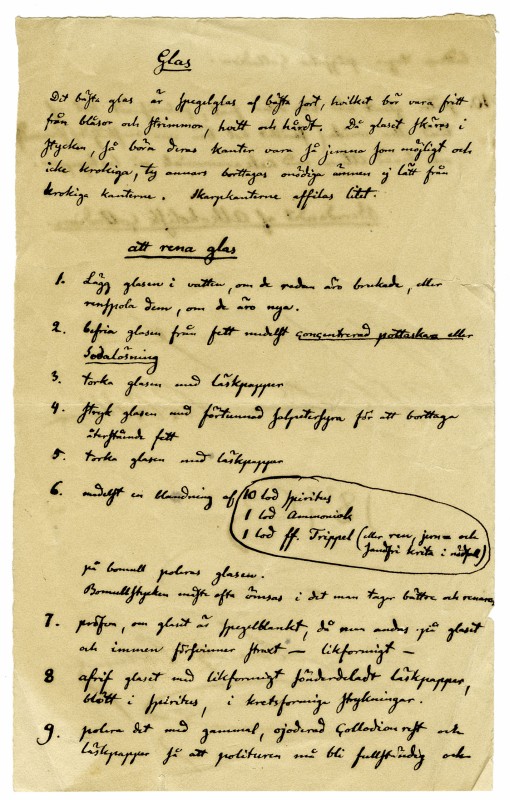 Glas
Det bästa glas är spegelglas af bästa sort, hvilket bör vara fritt
från blåsor och strimmor, hvitt och hårdt. Då glaset skäres i
stycken, så böra deras kanter vara så jemna som möjligt och
icke krokiga, ty annars borttagas onödiga ämnen ej lätt från
krokiga kanterne. Skarpa kanterne affilas litet.
att rena glas
1. Lägg glasen i vatten, om de redan äro brukade, eller
renspola dem, om de äro nya.
2. befria glasen från fett medelst concentrerad pottaska eller
Sodalösning
3. torka glasen med läskpapper
4. stryk glasen med förtunnad salpetersyra för att borttaga
återstående fett
5. torka glasen med läskpapper
6. medelst en blandning af 10 lod spiritus
1 lod Ammoniak
1 lod ff. Trippel (eller ren, jern= och
sandfri krita i nödfall)
på bomull poleras glasen.
Bomullstycken måste ofta ömsas i det man tager bättre och renare
7. pröfva, om glaset är spegelblankt, då man andas på glaset
och immen försvinner strax — likformigt —
8 afrif glaset med likformigt sönderdeladt läskpapper,
blött i spiritus, i kretsformige strykningar.
9. polera det med gammal, ojoderad Collodionrest och
läskpapper så att polituren må bli fullständig och